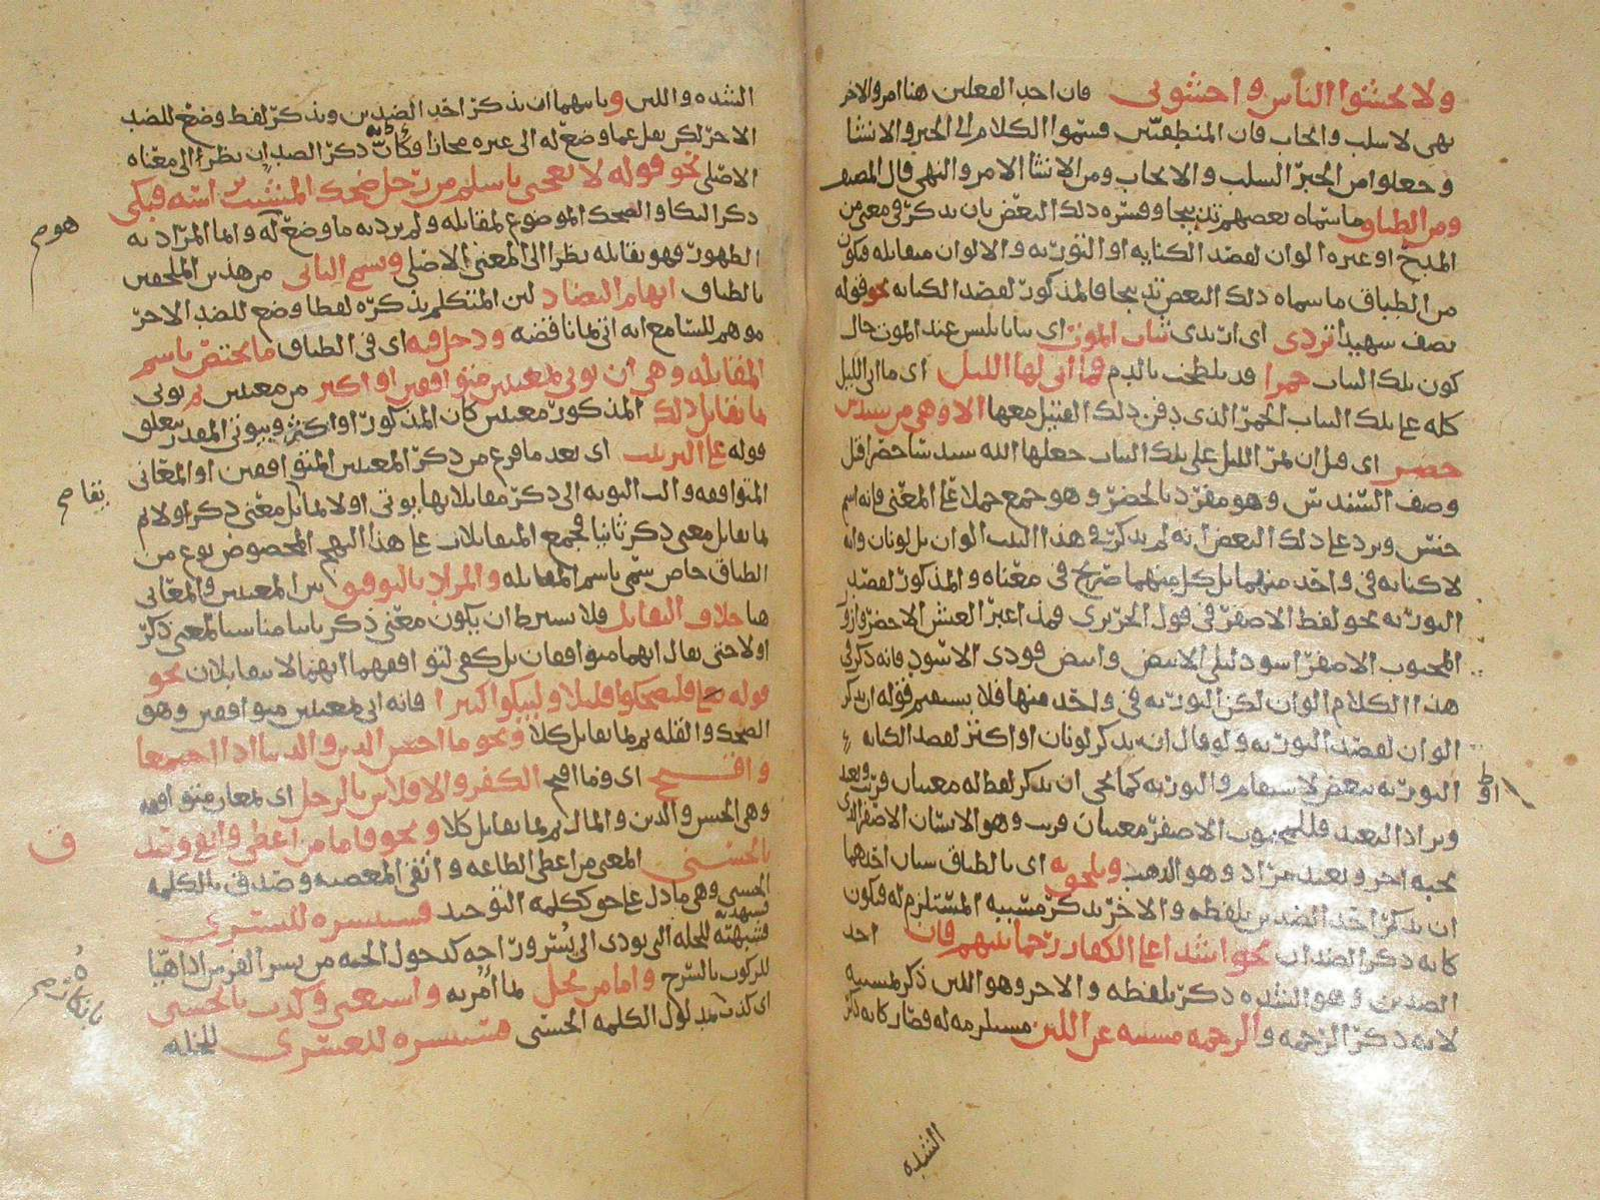 ولا تخشوا الناس واخشوني فان احد الفعلين هنا امر والاخر
نهى لا سلب وايجاب فان المنطقيين قسموا الكلام الى الخبر والانشا
وجعلوا من الخبر السلب والايجاب ومن الانشا الامر والنهي قال المصنف
ومن الطباق ما سماه بعضهم تدبيجا وفسره ذلك البعض بان يذكر في معنى من
المدح او غيره الوان لقصد الكنايه او التوريه والالوان متقابله فتكون
من الطباق ما سماه ذلك البعض تدبيجا فالمذكور لقصد الكنايه نحو قوله
يصف شهيدا تردى اى ارتدى ثياب الموت اى ثيابا يلبس عند الموت حال
كون تلك الثياب حمرا قد تلطخت بالدم فما اتى لها الليل اى ما اتى الليل
كله على تلك الثياب الحمر الذى دفن ذلك القتيل معها الا وهي من سندس
خضر اى قبل ان يمر الليل على تلك الثياب جعلها الله سندسا خضرا قبل
وصف السندس وهو مفرد بالخضر وهو جمع حملا على المعنى فانه اسم
جنس ويرد على ذلك البعض انه لم يذكر في هذا البيت الوان بل لونان وانه
لا كنايه في واحد منهما بل كل منهما صريح في معناه والمذكور لقصد
التوريه نحو لفظ الاصفر في قول الحريري فمذ اغبر العيش الاخضر وازور
المحبوب الاصفر اسود ليلى الابيض وابيض فودى الاسود فانه ذكر في
هذا الكلام الوان لكن التوريه في واحد منها فلا يستقيم قوله ان يذكر
الوان لقصد التوريه ولو قال انه يذكر لونان او اكثر لقصد الكنايه
او التوريه بتعض لاستقام والتوريه كما يجى ان يذكر لفظ له معنيان قريب وبعيد
ويراد البعيد فللمحبوب الاصفر معنيان قريب وهو الانسان الاصفر الذى
يحبه اخر وبعيد مراد وهو الذهب ويلحق به اى بالطباق سببان احدهما
ان يذكر احد الضدين بلفظه والاخر يذكر مسببه المستلزم له فتكون
كانه ذكر الضدان نحو اشدا على الكفار رحما بينهم فان احد
الضدين وهو الشده ذكر بلفظه والاخر وهو اللين ذكر لمسببه
لانه ذكر الرحمه والرحمه مسببه عن اللين مستلزمه له فصار كانه ذكر
الشده
الشده واللين وثانيهما ان يذكر احد الضدين ويذكر لفظ وضع للضد
الاخر لكن نقل عما وضع له الى غيره مجازا فكانه ذكر الضدان نظرا الى معناه
الاصلى نحو قوله لا تعجبى يا سلم من رجل ضحك المشيب براسه فبكى
ذكر البكا والضحك الموضوع لمقابله ولم يرد به ما وضع له وانما المراد به
الظهور فهو يقابله نظرا الى المعنى الاصلى ويسمى الثانى من هذين الملحقين
بالطباق ايهام التضاد لان المتكلم يذكره لفظا وضع للضد الاخر
موهم للسامع انه اتى بما ناقضه ودخل فيه اى في الطباق ما يختص باسم
المقابله وهي ان يوتى بمعنيين متوافقين او اكثر من معنيين ثم يوتى
بما يقابل ذلك المذكور معنيين كان المذكور او اكثر ويوتى المقدر يتعلق
قوله على الترتيب اى بعد ما فرغ من ذكر المعنيين المتوافقين او المعانى
المتوافقه والت النوبه الى ذكر مقابلاتها يوتى اولا بما يقابل معنى ذكر اولا ثم
بما يقابل معنى ذكر ثانيا فجمع المتقابلات على هذا النهج المخصوص نوع من
الطباق خاص سمى باسم المقابله والمراد بالتوفق بين المعنيين والمعانى
هنا خلاف التقابل فلا يشترط ان يكون معنى ذكر ثانيا مناسبا لمعنى ذكر
اولا حتى يقال انهما متوافقان بل يكفى لتوافقهما انهما لا يتقابلان نحو
قوله تعالى فليضحكوا قليلا وليبكوا كثيرا فانه اتى بمعنيين متوافقين وهو
الضحك والقله ثم بما يقابل كلا ونحو ما احسن الدين والدنيا اذا اجتمعا
واقبح اى وما اقبح الكفر والافلاس بالرجل اى بمعان متوافقه
وهي الحسن والدين والمال ثم بما يقابل كلا ونحو فاما من اعطى واتقى وصدق
بالحسنى المعنى من اعطى الطاعه واتقى المعصيه وصدق بالكلمه
الحسنى وهي ما دل على حق ككلمه التوحيد فسنيسره لليسرى
فسنهيئه للخله التى يودى الى يسر وراحه كدخول الجنه من يسر الفرس اذا هيا
للركوب بالسرج واما من بخل بما امر به واستغنى وكذب بالحسنى
اى كذب بمدلول الكلمه الحسنى فسنيسره للعسرى للخله